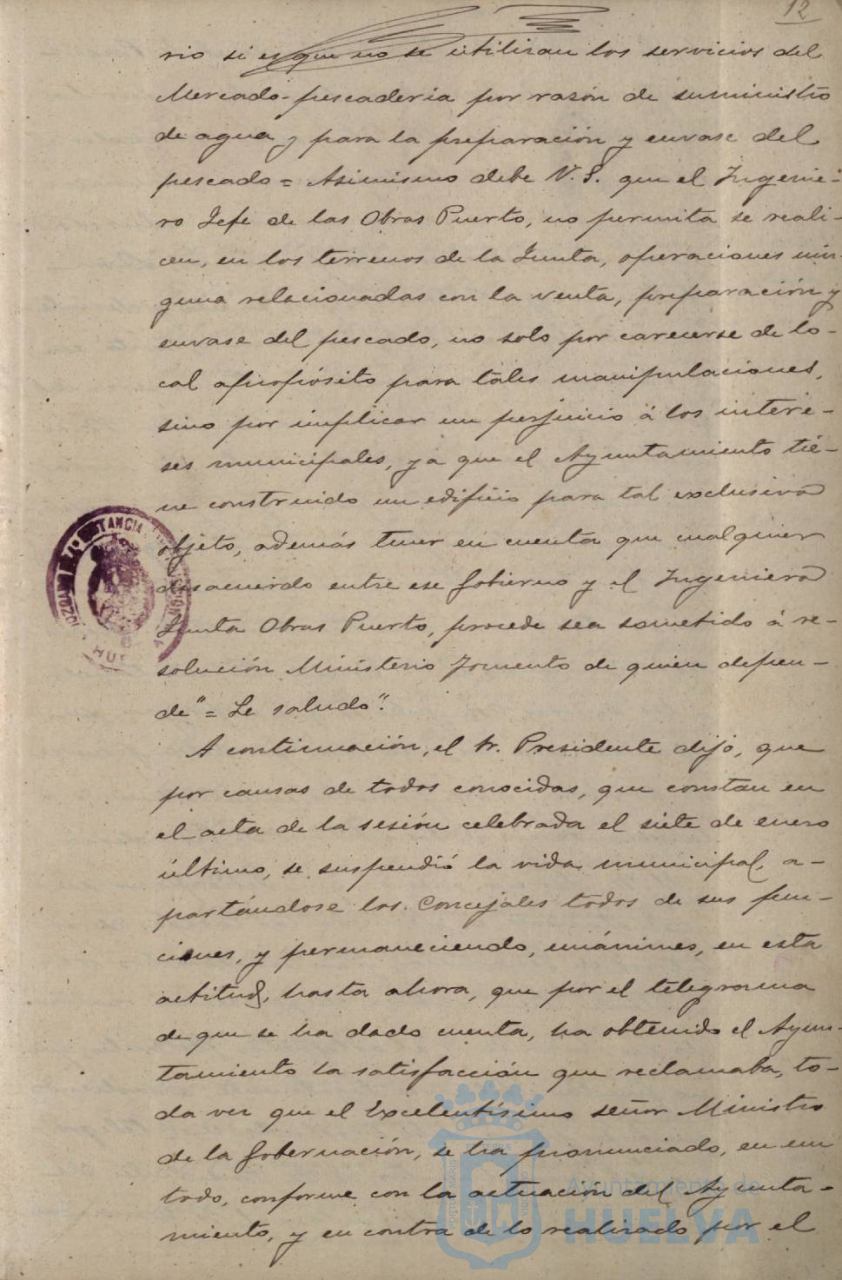 12
rio si es que no se utilizan los servicios del
Mercado-pescadería por razón de suministro
de agua y para la preparación y envase del
pescado = Asimismo debe V. S. que el Ingenie-
ro Jefe de las Obras Puerto, no permita se reali-
cen, en los terrenos de la Junta, operaciones nin-
guna relacionadas con la venta, preparación y
envase del pescado, no solo por carecerse de lo-
cal apropósito para tales manipulaciones,
sino por implicar un perjuicio á los intere-
ses municipales, ya que el Ayuntamiento tie-
ne construido un edificio para tal exclusivo
objeto, además tener en cuenta que cualquier
desacuerdo entre ese Gobierno y el Ingeniero
Junta Obras Puerto, procede sea sometido á re-
solución Ministerio Fomento de quien depen-
de" = Le saludo".
A continuación, el Sr. Presidente dijo, que
por causas de todos conocidas, que constan en
el acta de la sesión celebrada el siete de enero
último, se suspendió la vida municipal, a-
partándose los Concejales todos de sus fun-
ciones, y permaneciendo, unánimes, en esta
actitud, hasta ahora, que por el telegrama
de que se ha dado cuenta, ha obtenido el Ayun-
tamiento la satisfacción que reclamaba, to-
da vez que el Excelentísimo señor Ministro
de la Gobernación, se ha pronunciado, en un
todo, conforme con la actuación del Ayunta-
miento, y en contra de lo realizado por el
JUZGADO DE 1ª INSTANCIA
Ayuntamiento de
HUELVA